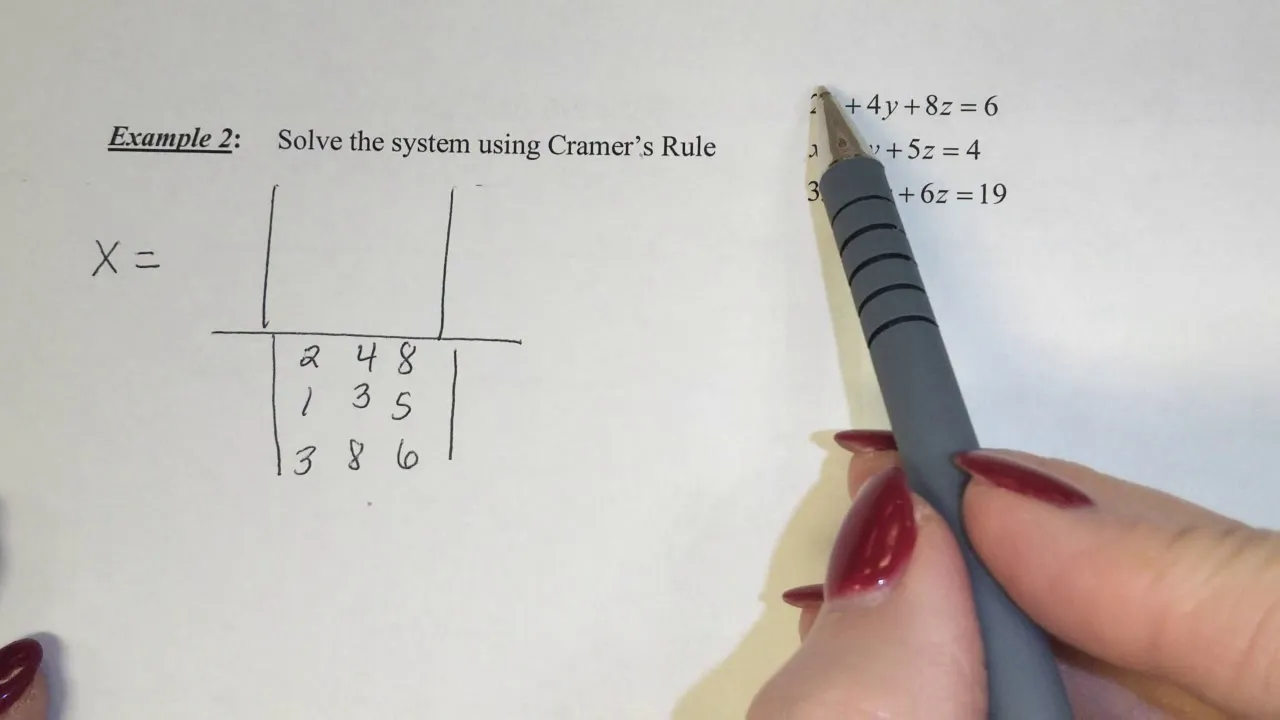 + 4y + 8z = 6
Example 2: Solve the system using Cramer's Rule
+ 5z = 4
3 + 6z = 19
X =
2 4 8
1 3 5
3 8 6